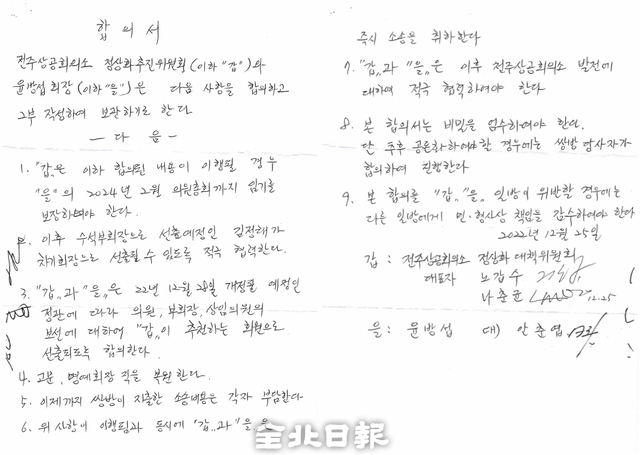 합 의 서
전주상공회의소 정상화추진위원회(이하 "갑")와
윤방섭 회장(이하 "을")은 다음 사항을 합의하고
2부 작성하여 보관하기로 한다.
— 다 음 —
1. "갑"은 이하 합의된 내용이 이행될 경우
"을"의 2024년 2월 의원총회까지 임기를
보장하여야 한다.
2. 이후 수석부회장으로 선출예정인 김정태가
차기회장으로 선출될 수 있도록 적극 협력한다.
3. "갑"과 "을"은 22년 12월 28일 개정될 예정인
정관에 따라 의원, 부회장, 상임의원의
보선에 대하여 "갑"이 추천하는 회원으로
선출되도록 합의한다.
4. 고문, 명예회장 직을 복원한다.
5. 이제까지 쌍방이 지출한 소송비용은 각자 부담한다
6. 위 사항이 이행됨과 동시에 "갑"과 "을"은
즉시 소송을 취하한다
7. "갑"과 "을"은 이후 전주상공회의소 발전에
대하여 적극 협력하여야 한다
8. 본 합의서는 비밀을 엄수하여야 한다.
단 추후 공론화하여야할 경우에는 쌍방 당사자가
합의하여 진행한다
9. 본 합의를 "갑" "을" 일방이 위반할 경우에는
다른 일방에게 민·형사상 책임을 감수하여야 한다
2022년 12월 25일
갑 : 전주상공회의소 정상화 대책위원회
대표자 노갑수
나춘균 12.25
을 : 윤방섭 대) 안춘엽
全北日報